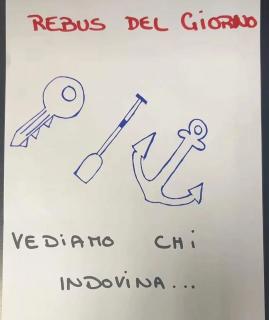 REBUS DEL GIORNO
VEDIAMO CHI
INDOVINA...